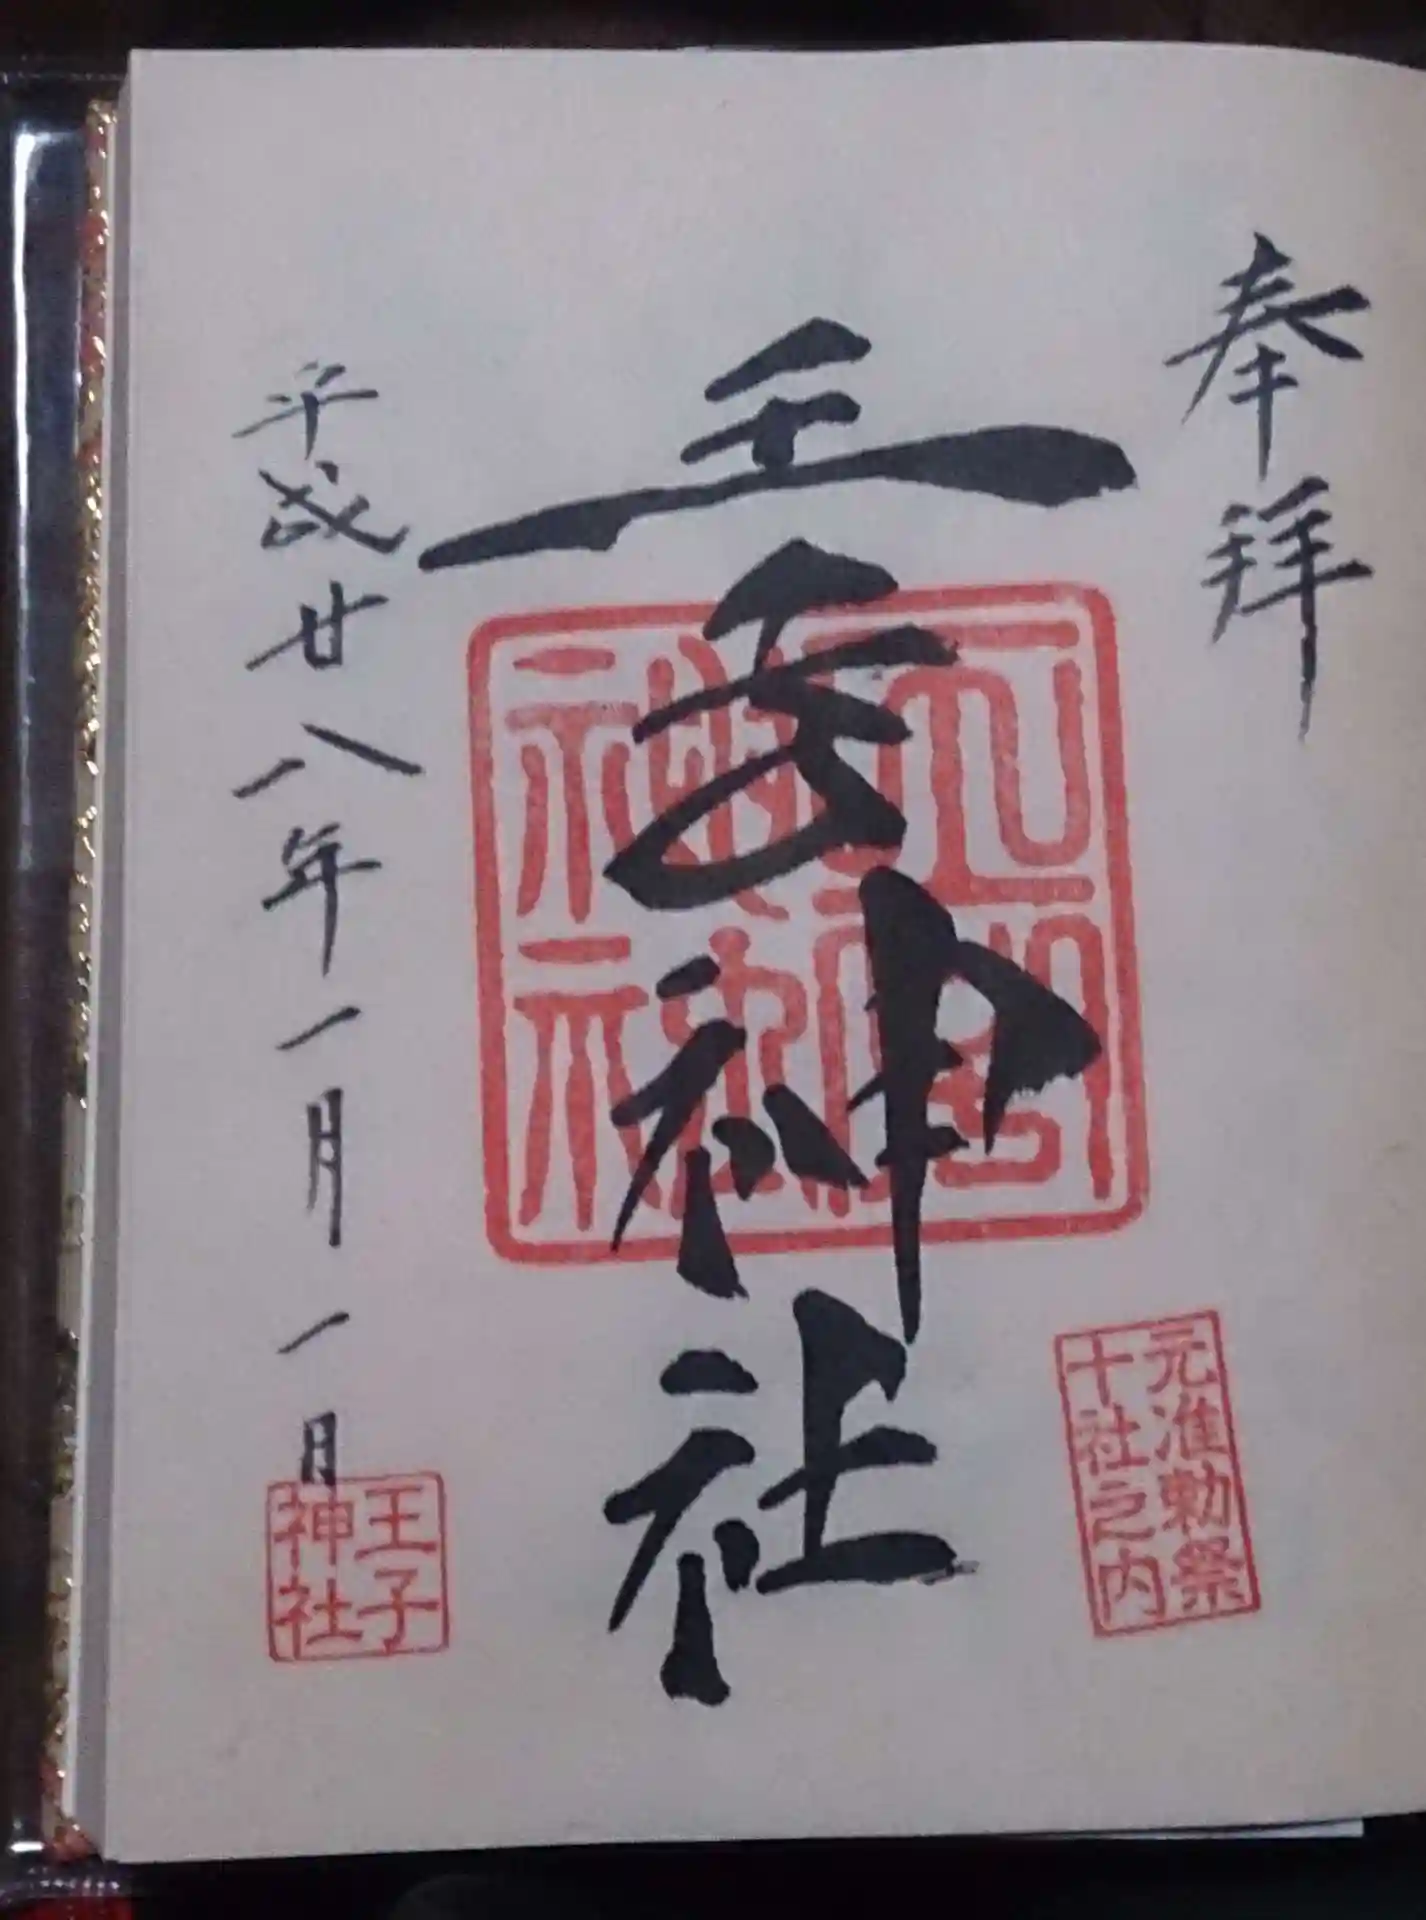 奉拝
元准勅祭
十社之内
王子神社
平成廿八年一月一日
王子
神社